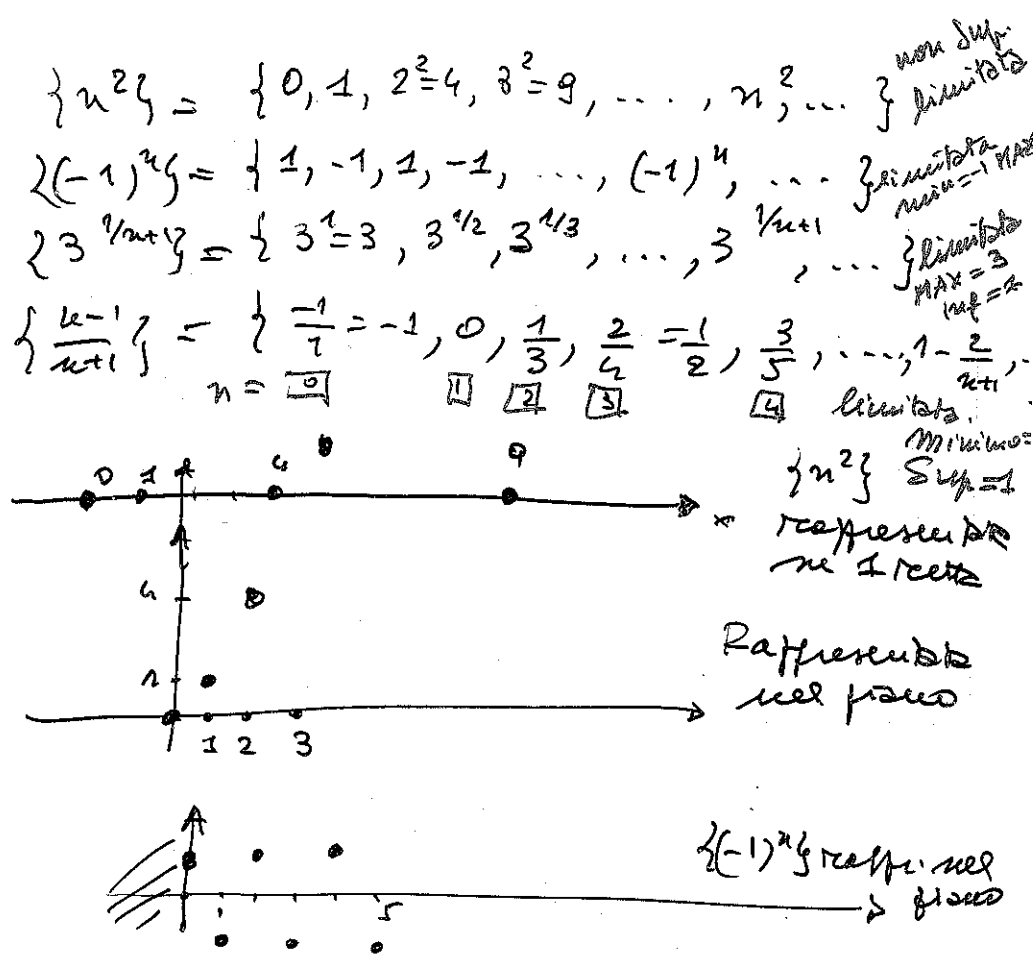 {n²} = {0, 1, 2²=4, 3²=9, ...., n², ...} non Sup. limitata
{(-1)ⁿ} = {1, -1, 1, -1, ..., (-1)ⁿ, ...} limitata min=-1 MAX
{3^1/n+1} = {3¹=3, 3^1/2, 3^1/3, ..., 3^1/n+1, ...} limitata MAX=3 inf=1
{n-1/n+1} = {-1/1=-1, 0, 1/3, 2/4=1/2, 3/5, ...., 1-2/n+1, .
n = 0 1 2 3 4 limitata.
Minimo=
0 1 4 9 {n²} Sup=1
x rappresentata
su 1 retta
4
Rappresentata
nel piano
1
1 2 3
{(-1)ⁿ} rappr. nel
piano
1 5